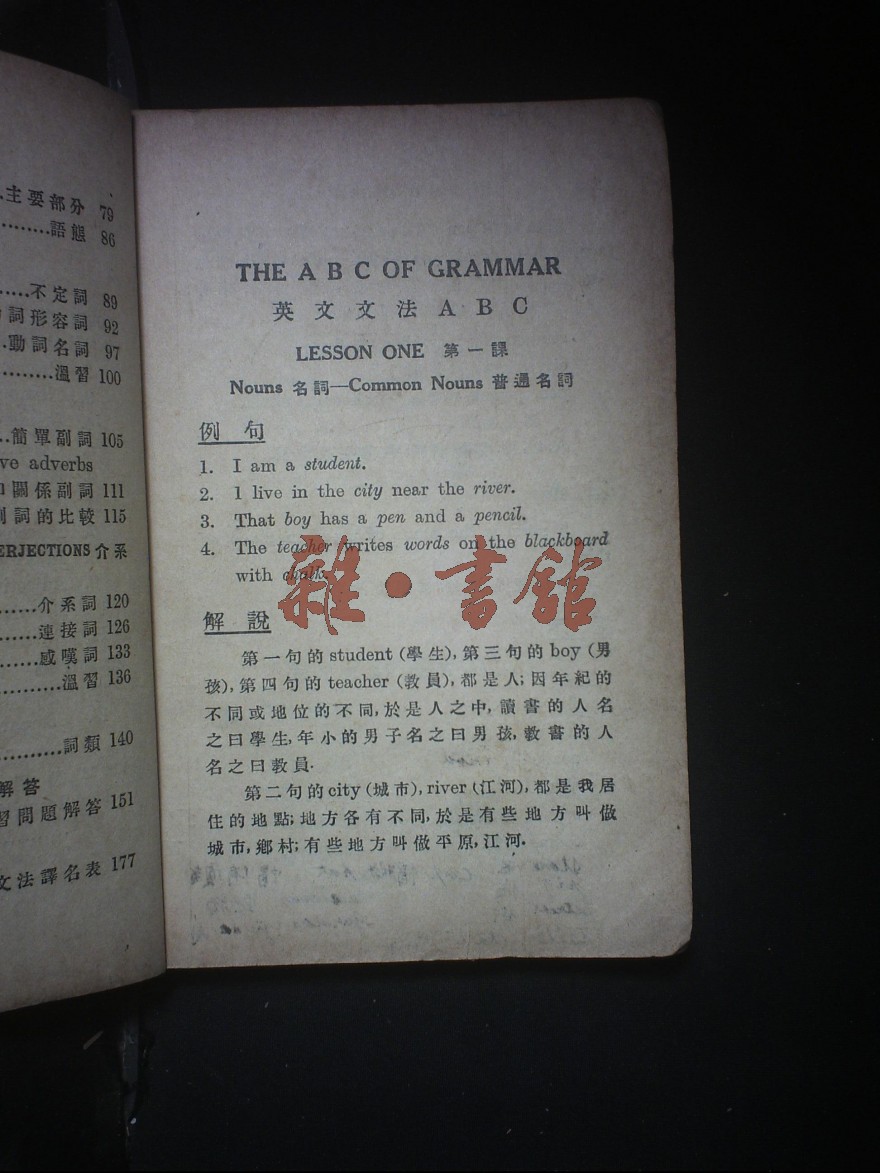 主要部分 79
語態 86
不定詞 89
詞形容詞 92
動詞名詞 97
溫習 100
簡單副詞 105
ve adverbs
關係副詞 111
副詞的比較 115
ERJECTIONS 介系
介系詞 120
連接詞 126
感嘆詞 133
溫習 136
詞類 140
解答
習問題解答 151
文法譯名表 177
THE A B C OF GRAMMAR
英文文法 A B C
LESSON ONE 第一課
Nouns 名詞—Common Nouns 普通名詞
例句
1. I am a student.
2. I live in the city near the river.
3. That boy has a pen and a pencil.
4. The teacher writes words on the blackboard
with chalk.
雜·書館
解說
第一句的 student (學生), 第三句的 boy (男
孩), 第四句的 teacher (教員), 都是人; 因年紀的
不同或地位的不同, 於是人之中, 讀書的人名
之曰學生, 年小的男子名之曰男孩, 教書的人
名之曰教員.
第二句的 city (城市), river (江河), 都是我居
住的地點; 地方各有不同, 於是有些地方叫做
城市, 鄉村; 有些地方叫做平原, 江河.